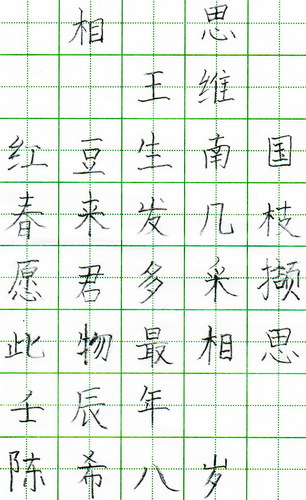 相 思
王 维
红 豆 生 南 国
春 来 发 几 枝
愿 君 多 采 撷
此 物 最 相 思
壬 辰 年
陈 希 八 岁